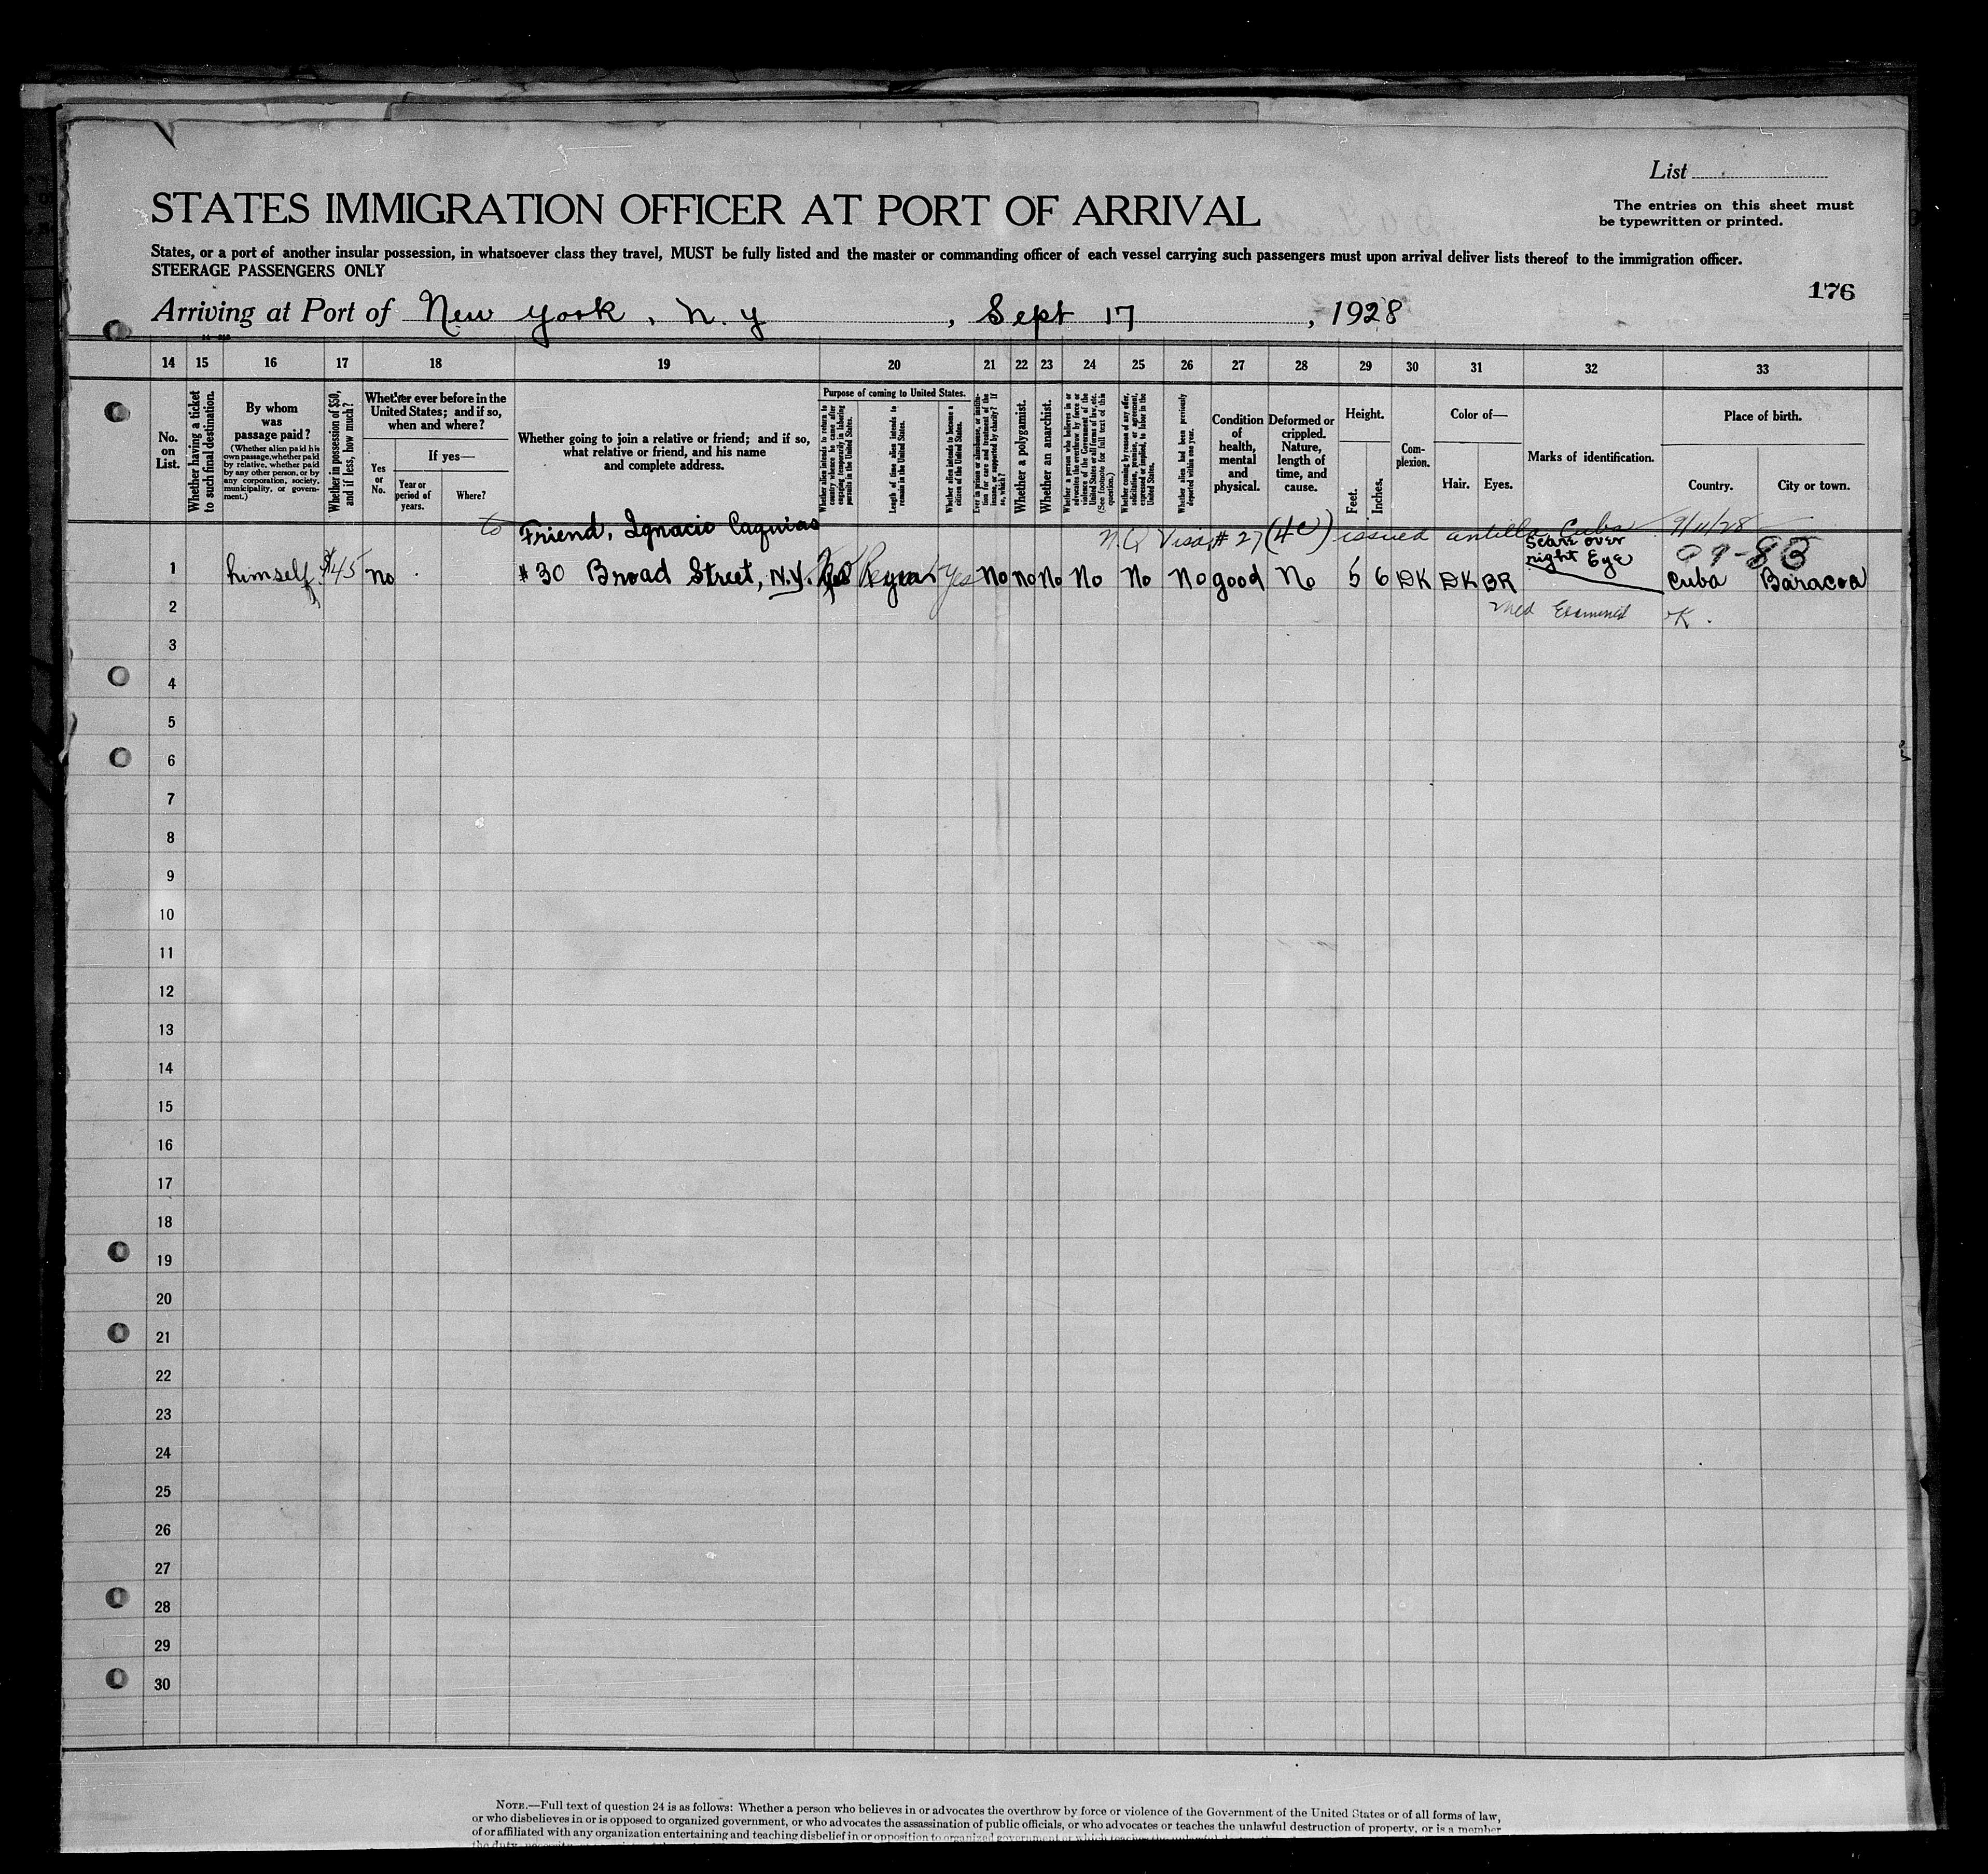 List
STATES IMMIGRATION OFFICER AT PORT OF ARRIVAL
The entries on this sheet must
be typewritten or printed.
States, or a port of another insular possession, in whatsoever class they travel, MUST be fully listed and the master or commanding officer of each vessel carrying such passengers must upon arrival deliver lists thereof to the immigration officer.
STEERAGE PASSENGERS ONLY
176
Arriving at Port of New York, N.Y, Sept 17, 1928
14 15 16 17 18 19 20 21 22 23 24 25 26 27 28 29 30 31 32 33
No. on List.
Whether having a ticket to such final destination.
By whom was passage paid?
(Whether alien paid his own passage, whether paid by relative, whether paid by any other person, or by any corporation, society, municipality, or government.)
Whether in possession of $50, and if less, how much?
Whether ever before in the United States; and if so, when and where?
Yes or No.
If yes—
Year or period of years.
Where?
Whether going to join a relative or friend; and if so, what relative or friend, and his name and complete address.
Purpose of coming to United States.
Whether alien intends to return to country whence he came after engaging temporarily in laboring pursuits in the United States.
Length of time alien intends to remain in the United States.
Whether alien intends to become a citizen of the United States.
Ever in prison or almshouse, or institution for care and treatment of the insane, or supported by charity? If so, which?
Whether a polygamist.
Whether an anarchist.
Whether a person who believes in or advocates the overthrow by force or violence of the Government of the United States or all forms of law, etc. (See footnote for full text of this question.)
Whether coming by reason of any offer, solicitation, promise, or agreement, expressed or implied, to labor in the United States.
Whether alien had been previously deported within one year.
Condition of health, mental and physical.
Deformed or crippled. Nature, length of time, and cause.
Height.
Feet. Inches.
Complexion.
Color of—
Hair. Eyes.
Marks of identification.
Place of birth.
Country. City or town.
to Friend, Ignacio Caquias
N.Q Visa # 27 (4c) issued antilla Cuba 9/11/28
Scar over
right Eye
09-83
1 himself $45 no #30 Broad Street, N.Y. yes No no No No No No good No 5 6 DK DK BR Cuba Baracoa
2 Med Examined OK.
3
4
5
6
7
8
9
10
11
12
13
14
15
16
17
18
19
20
21
22
23
24
25
26
27
28
29
30
NOTE.—Full text of question 24 is as follows: Whether a person who believes in or advocates the overthrow by force or violence of the Government of the United States or of all forms of law,
or who disbelieves in or is opposed to organized government, or who advocates the assassination of public officials, or who advocates or teaches the unlawful destruction of property, or is a member
of or affiliated with any organization entertaining and teaching disbelief in or opposition to organized government